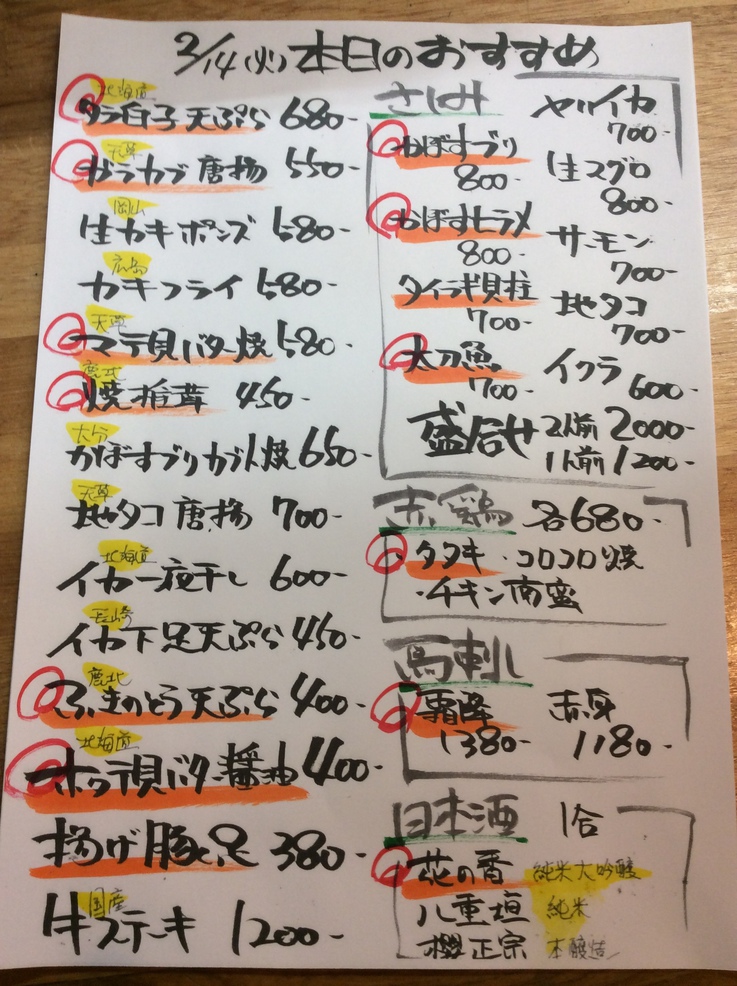 2/14(火)本日のおすすめ
北海道
タラ白子天ぷら 680-
天草
ガラカブ唐揚 550-
岡山
生カキポンズ 580-
広島
カキフライ 580-
天草
マテ貝バター焼 580-
鹿北
焼椎茸 450-
大分
かぼすブリカブト焼 650-
天草
地タコ唐揚 700-
北海道
イカ一夜干し 600-
長崎
イカ下足天ぷら 450-
鹿北
ふきのとう天ぷら 400-
北海道
ホタテ貝バター醤油 400-
揚げ豚足 380-
国産
牛ステーキ 1200-
さしみ
かぼすブリ
800-
かぼすヒラメ
800-
タイラギ貝柱
700-
太刀魚
700-
ヤリイカ
700-
生マグロ
800-
サーモン
700-
地タコ
700-
イクラ
600-
盛合せ 2人前 2000-
1人前 1200-
赤鶏 各680-
・タタキ ・コロコロ焼
・チキン南蛮
馬刺し
霜降 赤身
1380- 1180-
日本酒 1合
花の香 純米大吟醸
八重垣 純米
櫻正宗 本醸造